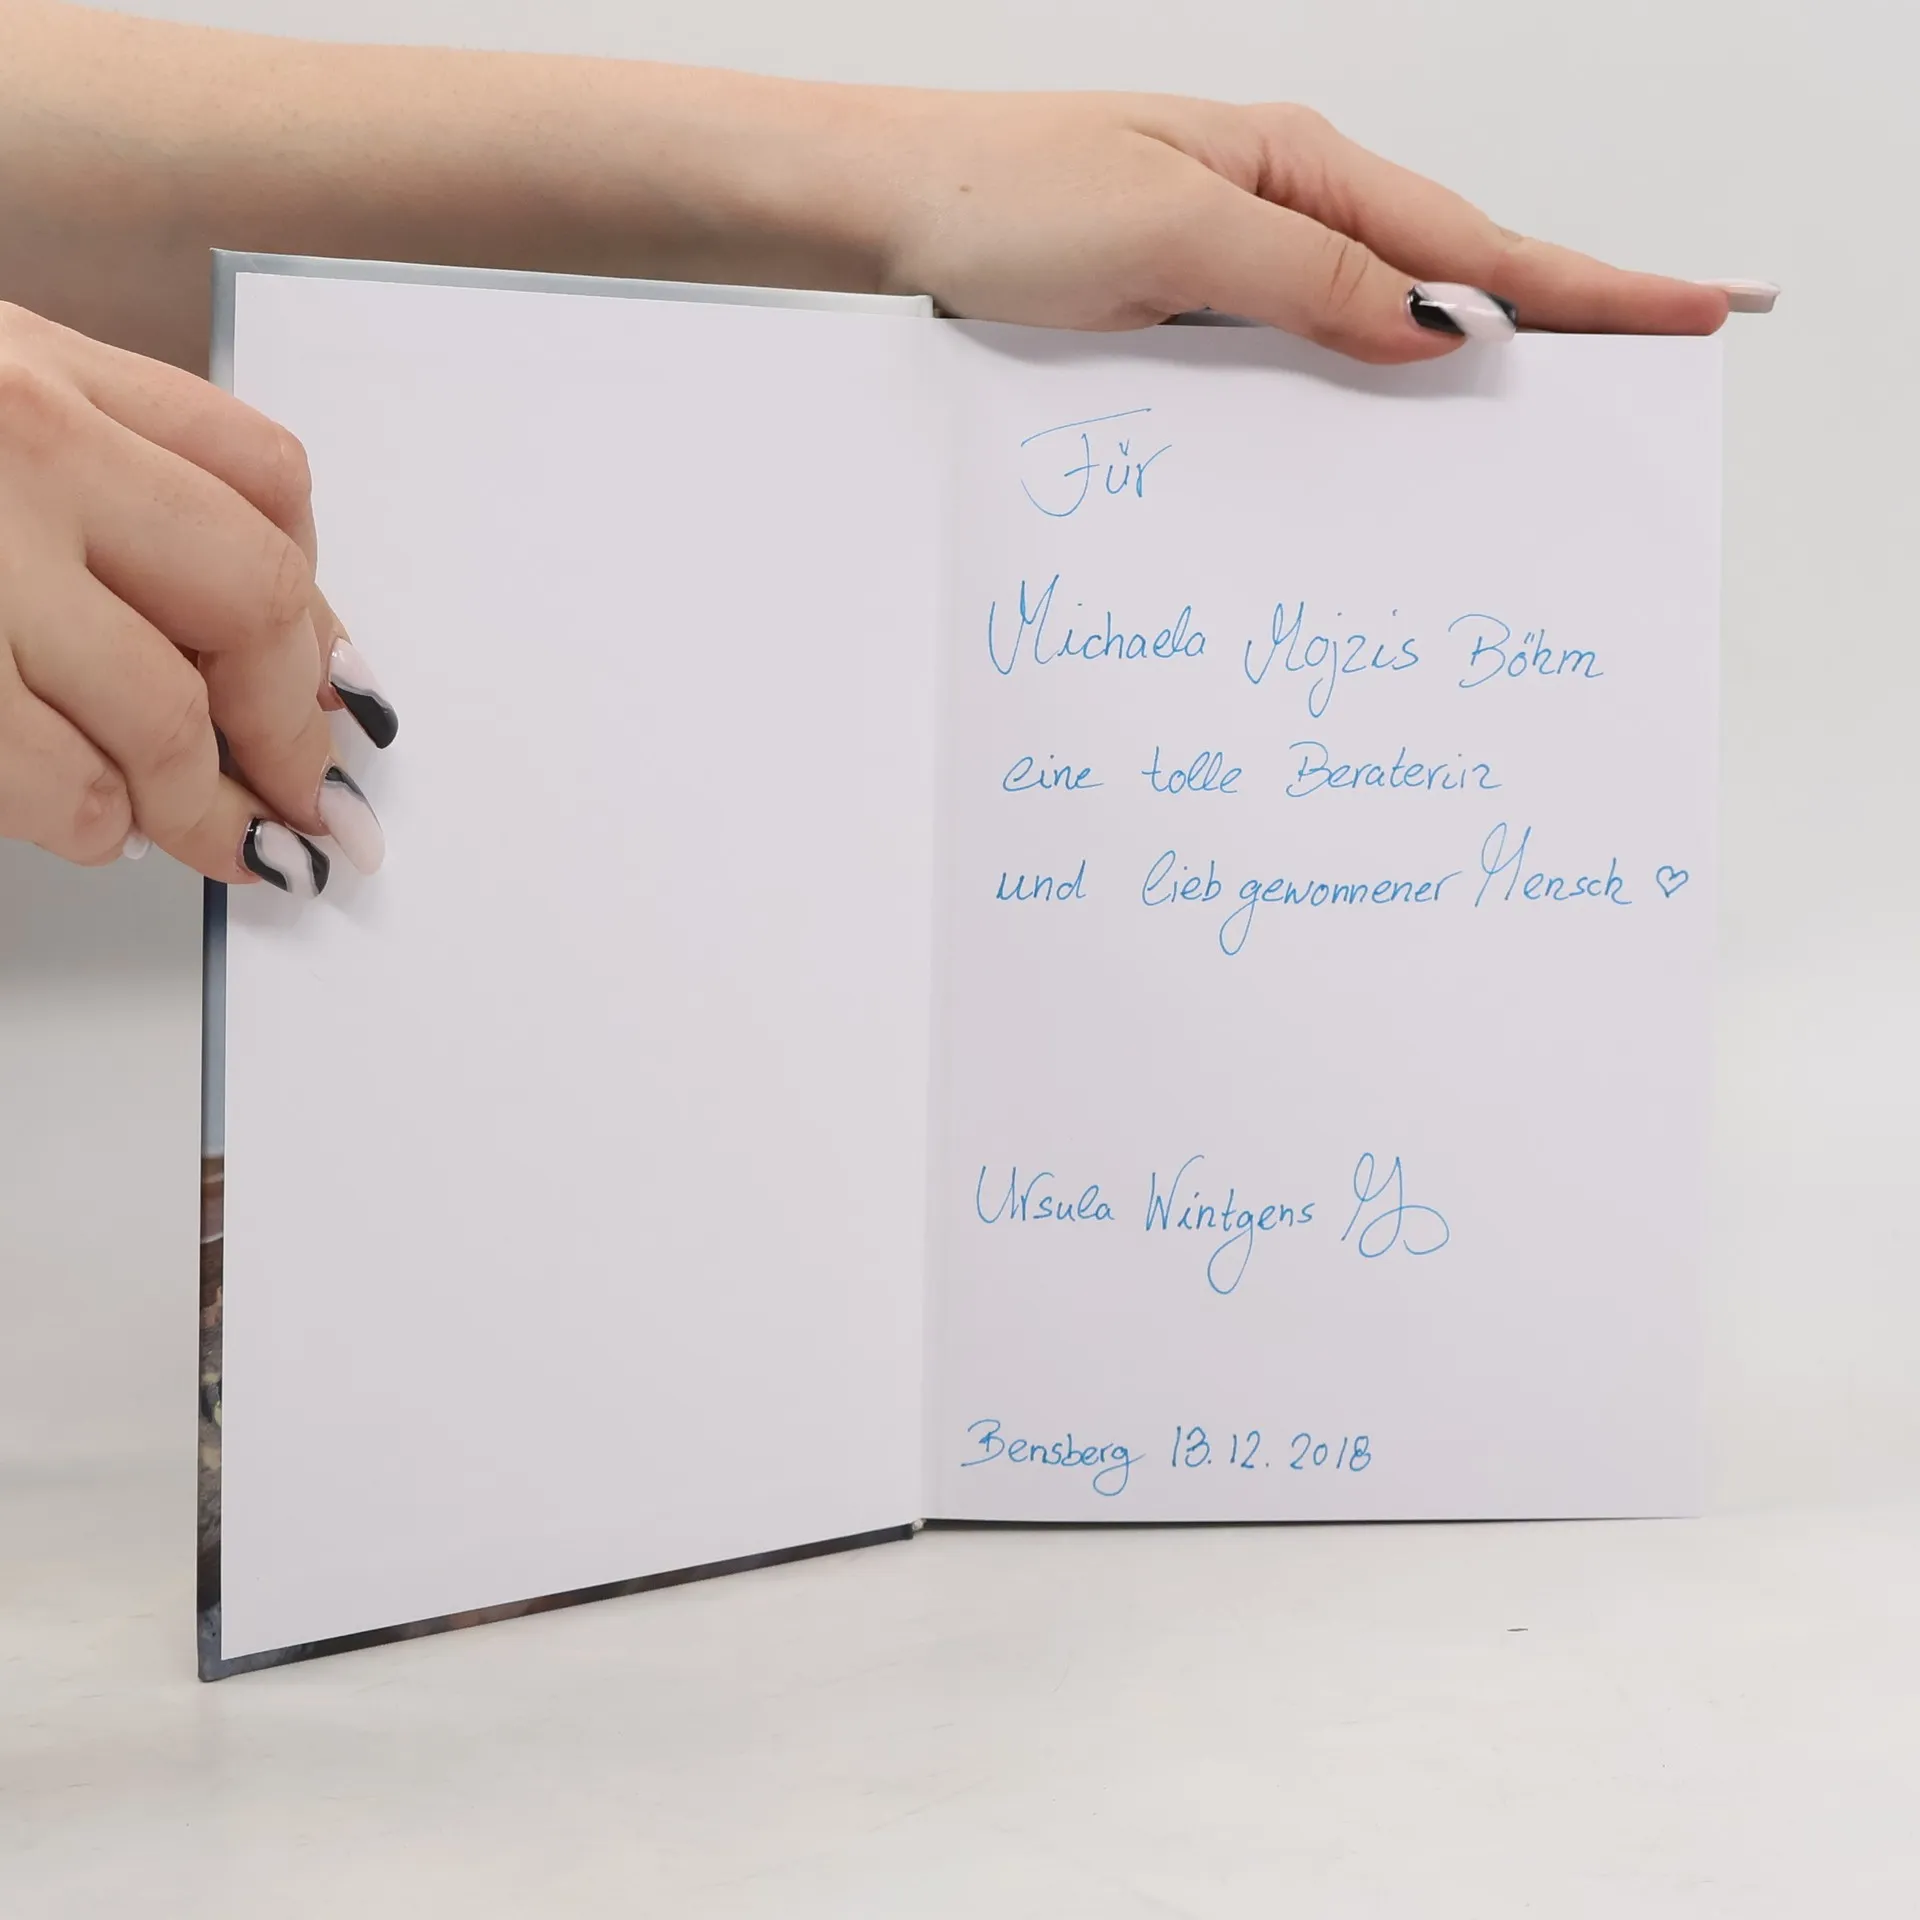 Für
Michaela Mojzis Böhm
eine tolle Beraterin
und lieb gewonnener Mensch ♡
Ursula Wintgens
Bensberg 13.12.2018